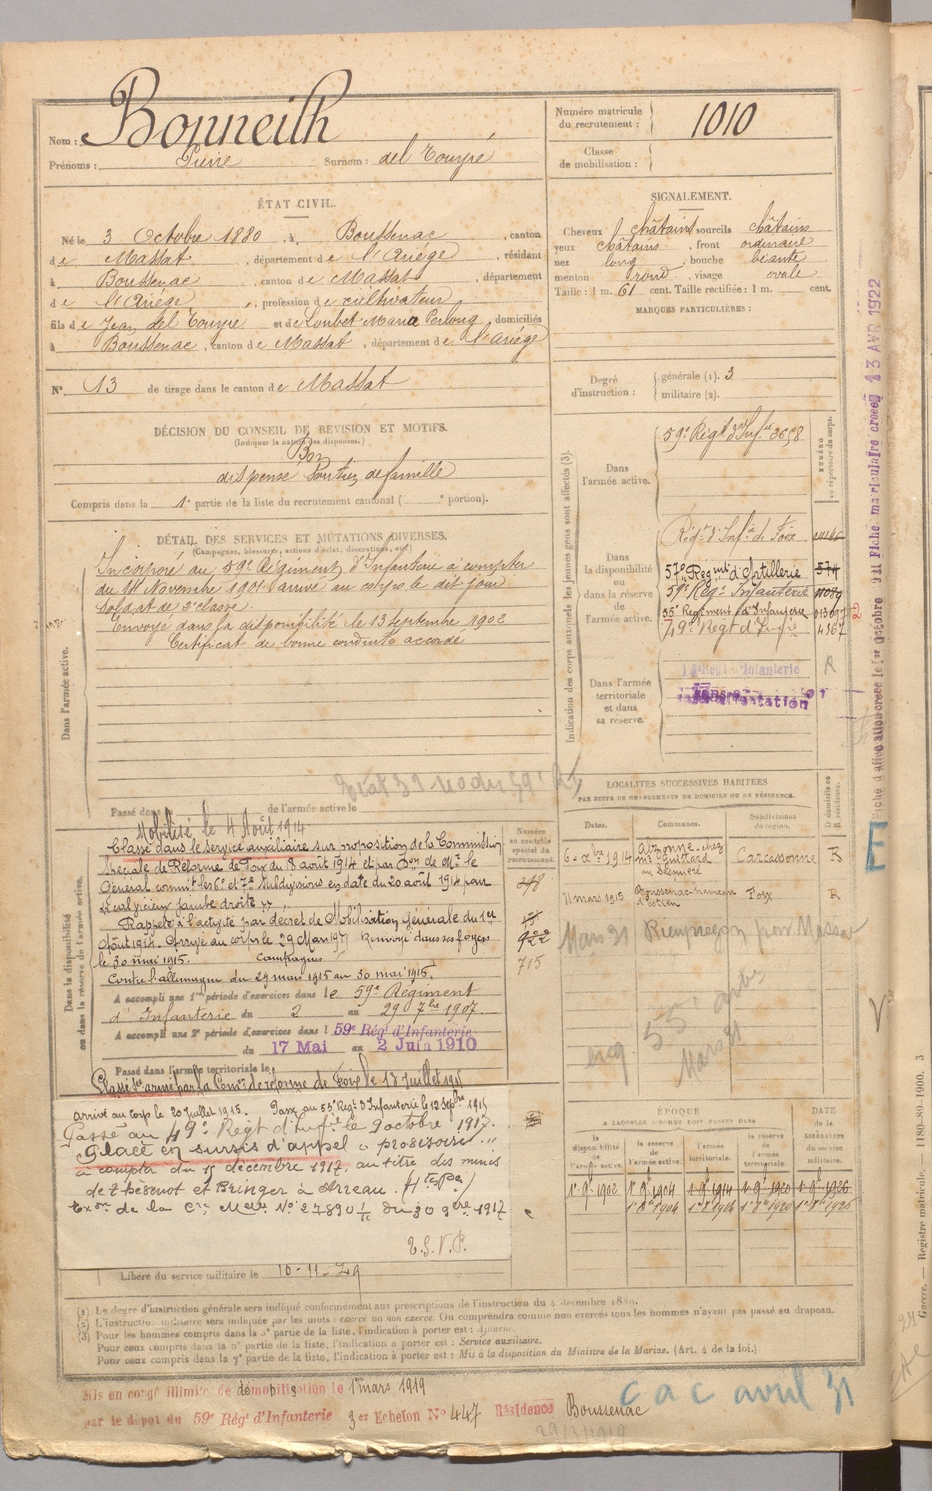 Nom : Bonneilh
Prénoms : Pierre Surnom : del Touyré
Numéro matricule du recrutement : 1010
Classe de mobilisation :
ÉTAT CIVIL.
Né le 3 Octobre 1880, à Boussenac, canton
de Massat, département de l'Ariège, résidant
à Boussenac, canton de Massat, département
de l'Ariège, profession de cultivateur
fils de Jean del Touyré et de Loubet Maria Perlong, domiciliés
à Boussenac, canton de Massat, département de l'Ariège
N° 13 de tirage dans le canton de Massat
SIGNALEMENT.
Cheveux châtains sourcils châtains
yeux châtains, front ordinaire
nez long, bouche béante
menton rond, visage ovale
Taille : 1 m. 61 cent. Taille rectifiée : 1 m. cent.
MARQUES PARTICULIÈRES :
Degré d'instruction : générale (1). 3
militaire (2).
DÉCISION DU CONSEIL DE RÉVISION ET MOTIFS.
(Indiquer la nature des dispenses.)
Bon
dispensé Soutien de famille
Compris dans la 1e partie de la liste du recrutement cantonal ( e portion).
DÉTAIL DES SERVICES ET MUTATIONS DIVERSES.
(Campagnes, blessures, actions d'éclat, décorations, etc.)
Dans l'armée active.
Incorporé au 59e Régiment d'Infanterie à compter
du 14 Novembre 1901 arrivé au corps le dit jour
Soldat de 2e classe
Envoyé dans la disponibilité le 13 Septembre 1902
Certificat de bonne conduite accordé
Passé dans de l'armée active le
Dans la disponibilité ou dans la réserve de l'armée active.
Mobilisé le 4 Août 1914
Classé dans le service auxiliaire sur proposition de la Commission
Spéciale de Réforme de Foix du 8 août 1914 et par Don de Mr le
Général commt les 6e et 7e Subdivisions en date du 20 août 1914 pour
jambe droite
Rappelé à l'activité par décret de Mobilisation Générale du 1er
Août 1914. Arrivé au corps le 29 Mars 191 Renvoyé dans ses foyers
le 30 mai 1915. Campagnes
Contre l'allemagne du 29 mars 1915 au 30 mai 1915.
A accompli une 1re période d'exercices dans le 59e Régiment
d'Infanterie du 2 au 29 7bre 1907.
A accompli une 2e période d'exercices dans l 59e Régt d'Infanterie
du 17 Mai au 2 Juin 1910
Passé dans l'armée territoriale le
Classé sce armé par la Comon de réforme de Foix le 13 Juillet 1915
Arrivé au corps le 20 Juillet 1915. Passé au 55e Régt d'Infanterie le 12 Sepbre 191
Passé au 49e Régt d'Infie le 9 octobre 1917.
Placé en sursis d'appel " provisoire "
à compter du 15 décembre 1917, au titre des mines
de Thésnot et Bringer à Arreau.
de la Cre Melle N° 27890 du 30 9bre 1917
T.S.V.P.
Libéré du service militaire le 10-11-29
Numéro au contrôle spécial du recrutement.
248
922
715
Indication des corps auxquels les jeunes gens sont affectés (3).
Dans l'armée active. 59e Régt d'Infie 3658
NUMÉRO au répertoire du corps.
Dans la disponibilité ou dans la réserve de l'armée active.
Régt d'Infie de Foix
57e Regmt d'Artillerie 574
59e Régt Infanterie
55e Regiment d'Infanterie
49e Régt d'Infie 4367
Dans l'armée territoriale et dans sa réserve.
d'Infanterie
Sans affectation
LOCALITÉS SUCCESSIVES HABITÉES
PAR SUITE DE CHANGEMENTS DE DOMICILE OU DE RÉSIDENCE.
Dates. Communes. Subdivisions de région. D domicile ou R résidence.
6 xbre 1914 Alzonne chez Mr Guittard Carcassonne R
11 mars 1915 Boussenac Foix R
Mars 31 par Massat
55e
Mars 31
ÉPOQUE
A LAQUELLE L'HOMME DOIT PASSER DANS
la disponibilité de l'armée active. la réserve de l'armée active. l'armée territoriale. la réserve de l'armée territoriale. DATE de la LIBÉRATION du service militaire.
1er 9bre 1902 1er 9bre 1904 1er 9bre 1914 1er 9bre 1920 1er 9bre 1926
(1) Le degré d'instruction générale sera indiqué conformément aux prescriptions de l'instruction du 4 décembre 1889.
(2) L'instruction militaire sera indiquée par les mots : exercé ou non exercé. On comprendra comme non exercés tous les hommes n'ayant pas passé au drapeau.
(3) Pour les hommes compris dans la 5e partie de la liste, l'indication à porter est : Ajourné.
Pour ceux compris dans la 6e partie de la liste, l'indication à porter est : Service auxiliaire.
Pour ceux compris dans la 7e partie de la liste, l'indication à porter est : Mis à la disposition du Ministre de la Marine. (Art. 4 de la loi.)
Mis en congé illimité de démobilisation le 1er mars 1919
par le dépôt du 59e Régt d'Infanterie 3er Echelon N° 447 Résidence Boussenac
29/3/1919
c a c avril 31
13 AVR 1922
E
Guerre. — Registre matricule. — 1180-89-1900. 3